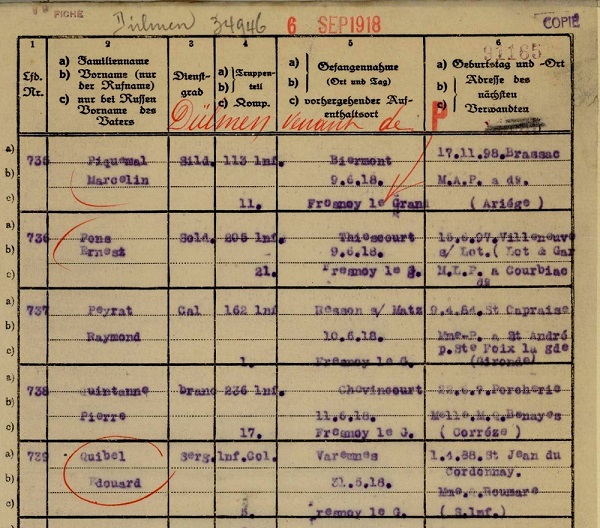 FICHE Dülmen 34946 6 SEP 1918 COPIE
91165
1 2 3 4 5 6
Lfd. Nr. a) Familienname b) Vorname (nur der Rufname) c) nur bei Russen Vorname des Vaters Dienst-grad a) b) Truppen-teil c) Komp. a) Gefangennahme b) (Ort und Tag) c) vorhergehender Auf-enthaltsort a) Geburtstag und -Ort b) Adresse des c) nächsten Verwandten
Dülmen venant de P
a) 735 Piquemal Sild. 113 Inf. Biermont 17.11.98.Brassac
b) Marcelin 9.6.18. M.A.P. a ds.
c) 11. Fresnoy le Grand (Ariége)
a) 736 Pons Sold. 205 Inf. Thiescourt 15.6.97.Villeneuve
b) Ernest 9.6.18. s/ Lot.(Lot & Gar
c) 21. Fresnoy le G. M.L.P. a Courbiac
ds
a) 737 Peyrat Cal 162 Inf Resson s/ Matz 9.4.84.St Capraise
b) Raymond 10.6.18. Mme.P. a St André
c) 1. Fresnoy le G. p.Ste Foix la gde
(Gironde)
a) 738 Quintanne branc 236 Inf. Chevincourt Porcherie
b) Pierre 11.6.18. Melle.M.Q.Benayes
c) 17. Fresnoy le G. (Corréze)
a) 739 Quibel Serg. Inf.Col. Varennes 1.4.88.St Jean du
Cordonnay.
b) Edouard 31.5.18. Mme.Q.Roumare
c) Fresnoy le G. (S.Inf.)